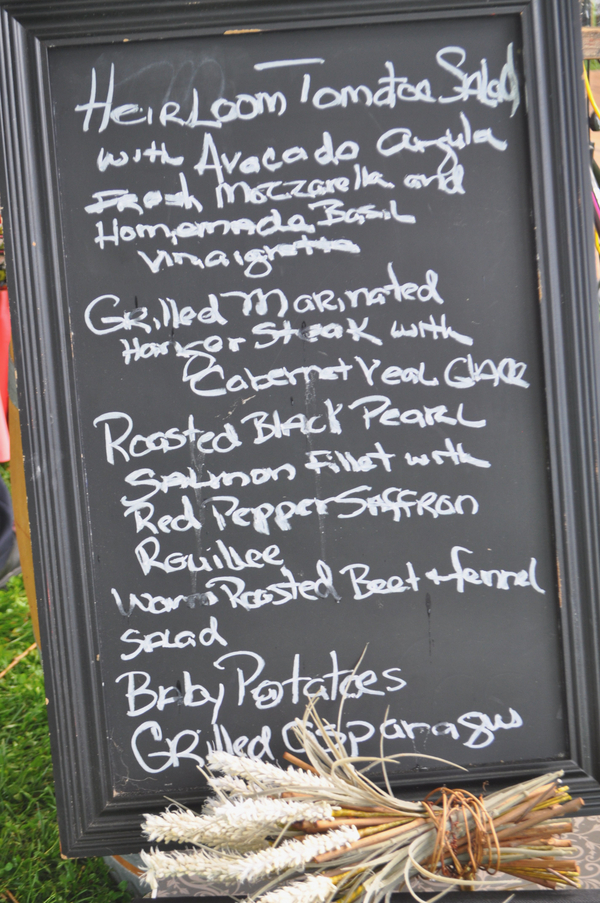 Heirloom Tomatoe Salad
with Avocado Arugula
Fresh Mozzarella and
Homemade Basil
Vinaigrette
Grilled Marinated
Hanger Steak with
Cabernet Veal Glace
Roasted Black Pearl
Salmon fillet with
Red Pepper Saffron
Rouillee
Warm Roasted Beet + fennel
Salad
Baby Potatoes
Grilled Asparagus